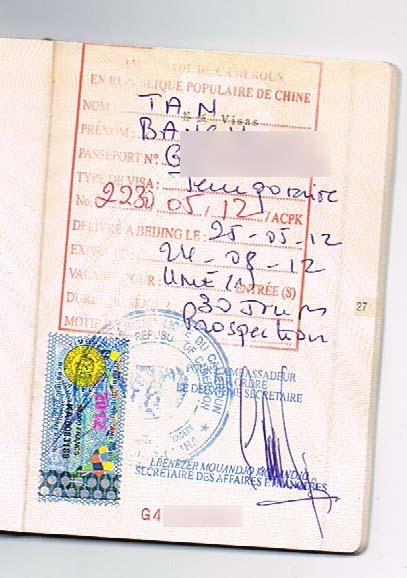 AMBASSADE DU CAMEROUN
EN REPUBLIQUE POPULAIRE DE CHINE
NOM: TAN
签 证 Visas
PRÉNOM:
PASSEPORT N°: G
TYPE DE VISA: Temporaire
No. 2230/05/12/ACPK
DELIVRÉ A BEIJING LE: 25-05-12
EXPIRE 24-08-12
VALABLE POUR: UNE (1) ENTRÉE(S)
DURÉE DE SÉJOUR 30 Jours
MOTIF Prospection
27
REPUBLIC OF CAMEROON
2012
POUR L'AMBASSADEUR
ET PAR ORDRE
LE DEUXIÈME SECRÉTAIRE
EBENEZER MOUANDJO
SECRÉTAIRE DES AFFAIRES ETRANGÈRES
G4